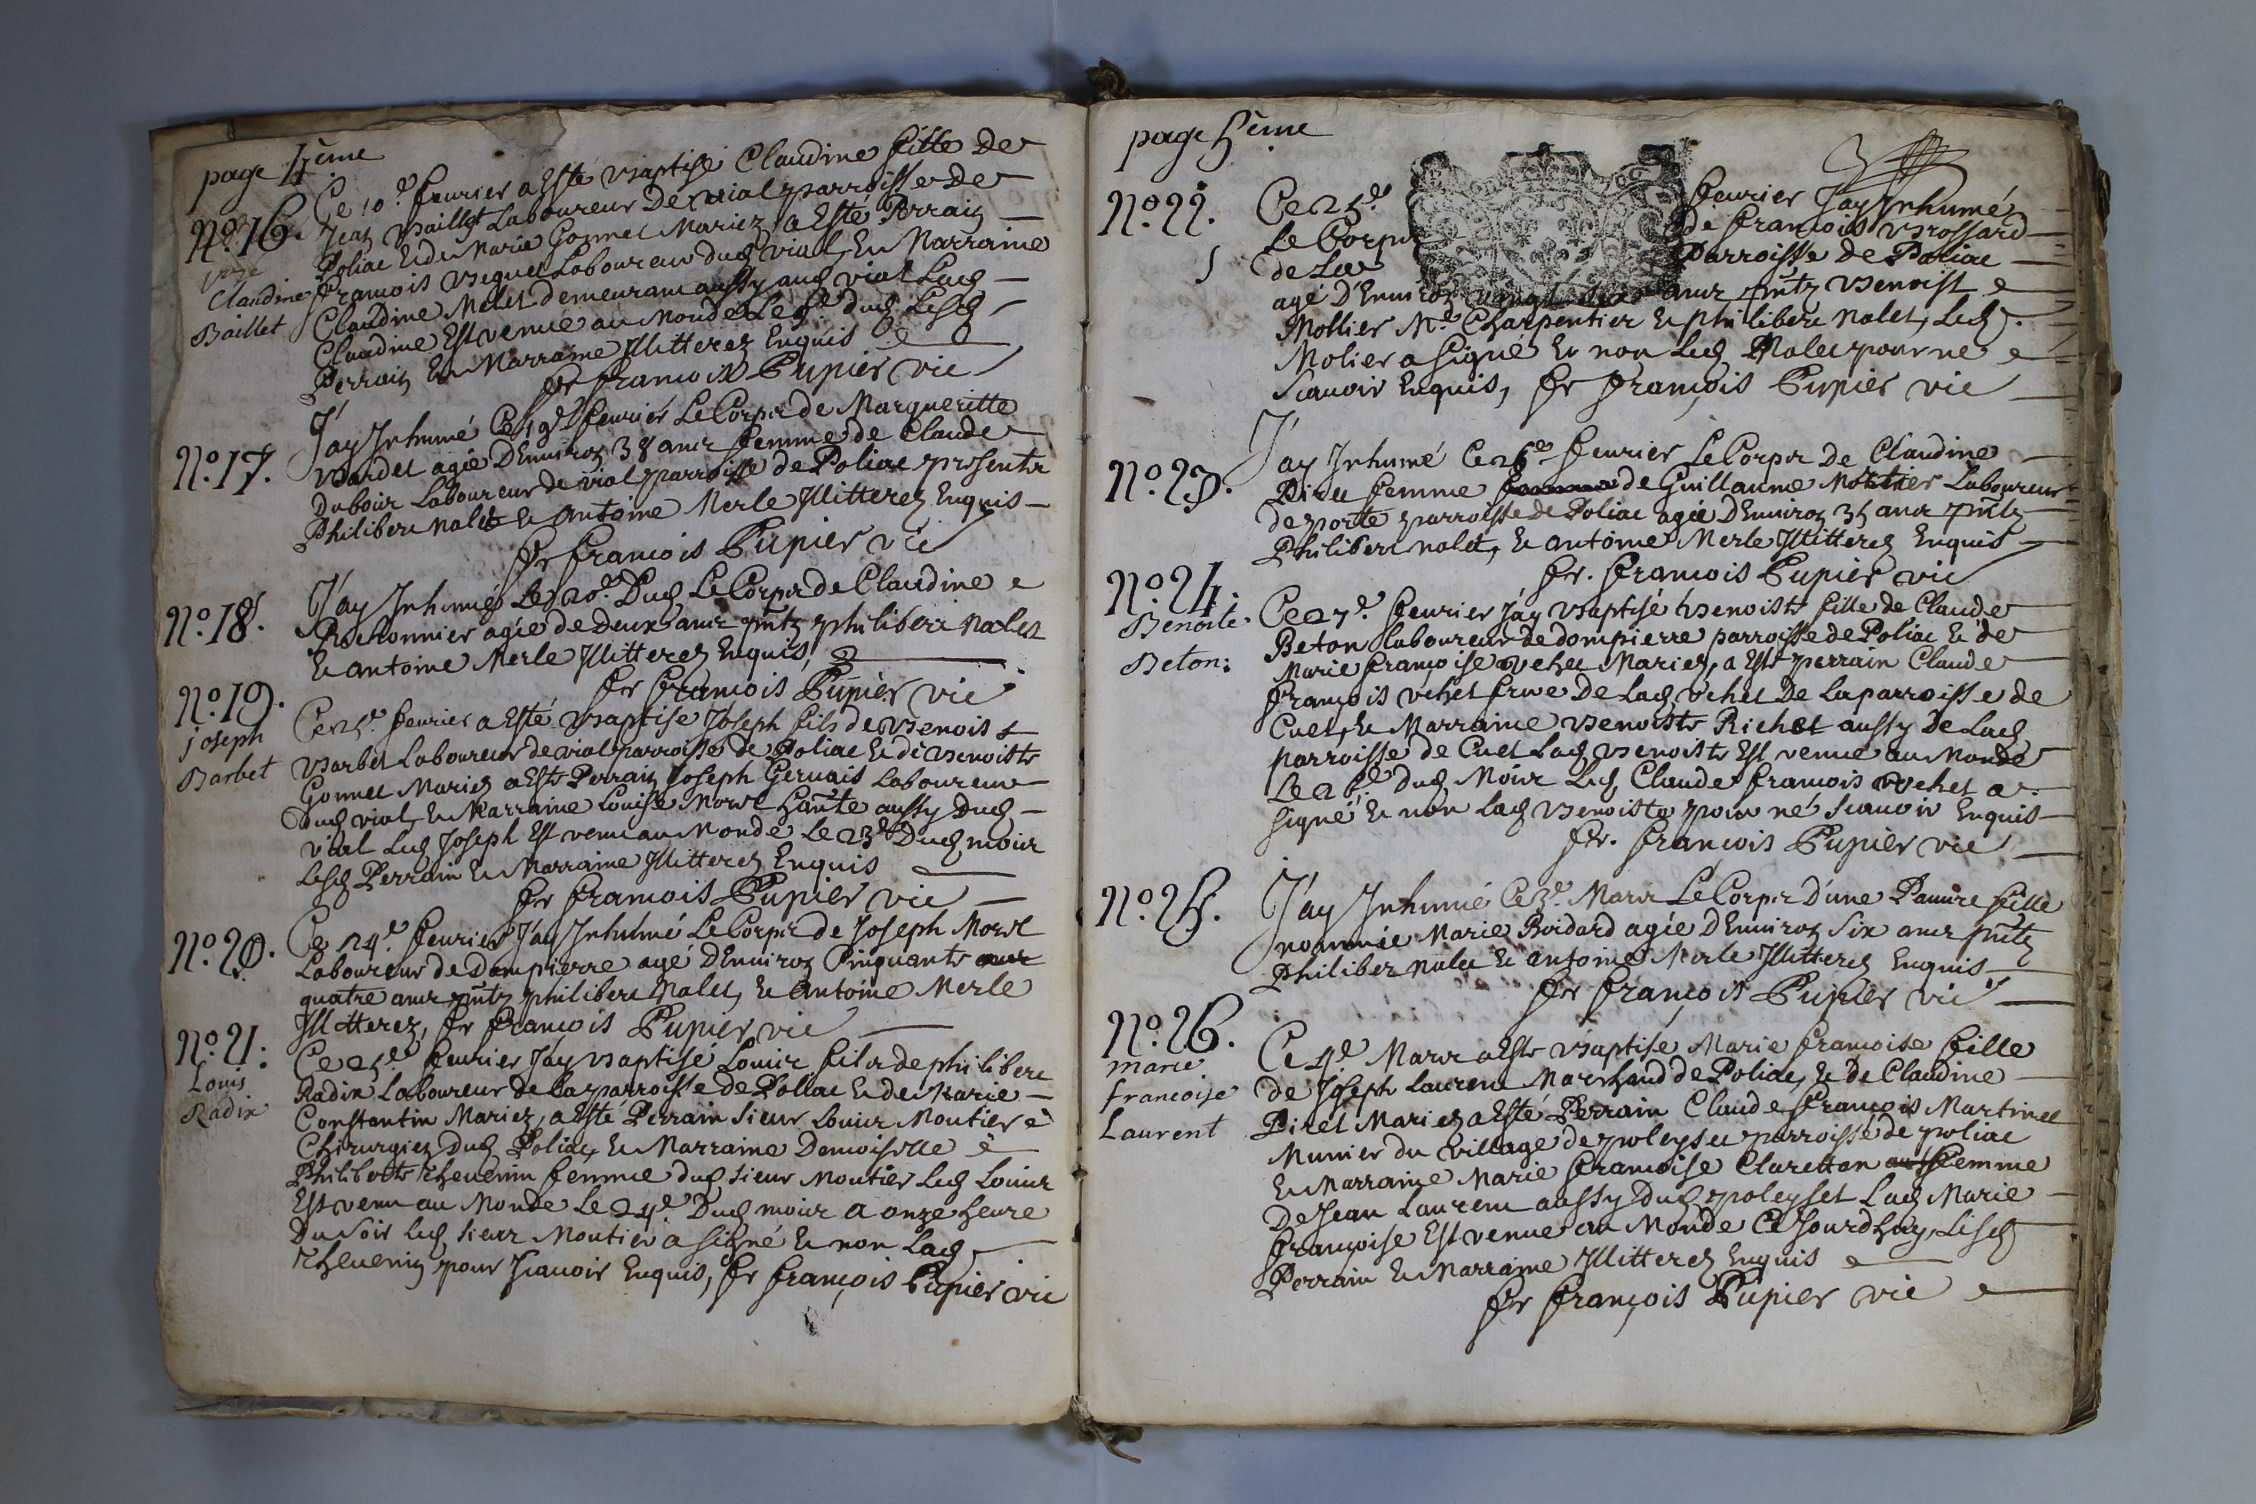 page 4ème
N.º 16.
Claudine
Baillet
Ce 10.e feurier a Esté Baptisé Claudine fille De
Jean Baillet Laboureur De vial parroisse De
Poliac Et de Marie Gonnet Mariez a Esté Perrain
francois Laboureur dud vial, Et Marraine
Claudine Melet demeurant aussy aud vial Lad
Claudine Est venue au Monde Le dud Lesd
Perrain Et Marraine Illitterez Enquis
fr francois Pupier vic
N.º 17.
J'ay Inhumé Ce 19e feurier Le Corps de Margueritte
Bardet agée D'Enuiron 38 ans femme de Claude
Dubois Laboureur de vial parroisse de Poliac presents
Philibert Nalet Et Antoine Merle Illitterez Enquis
fr francois Pupier vic
N.º 18.
J'ay Inhumé Le 20.e Dud Le Corps de Claudine
Rochonnier agée de Deux ans pntz philibert Nalet
Et antoine Merle Illitterez Enquis,
fr francois Pupier vic
N.º 19.
joseph
Barbet
Ce 25.e feurier a Esté Baptise Joseph fils de Benoist
Barbet Laboureur de vial parroisse de Poliac Et de Benoiste
Gonnet Mariez a Este Perrain Joseph Geruais Laboureur
Dud vial, Et Marraine Louise Morel aussy Dud
vial Led Joseph Est venu au Monde Le 23e Dud mois
Lesd Perrain Et Marraine Illitterez Enquis
fr francois Pupier vic
N.º 20.
Ce 24.e feurier J'ay Inhumé Le Corps de Joseph Morel
Laboureur de Dompierre agé D'Enuiron Cinquante ans
quatre ans pntz philibert Nalet, Et Antoine Merle
Illitterez, fr françois Pupier vic
N.º 21.
Louis
Radix
Ce 25.e feurier J'ay Baptisé Louis fils de philibert
Radix Laboureur de La parroisse de Poliac Et de Marie
Constantin Mariez, a Esté Perrain Sieur Louis Moutier
Chirurgien Dud Poliac, Et Marraine Demoiselle
Philiberte Theuenin femme dud Sieur Moutier Led Louis
Est venu au Monde Le 24.e Dud mois a onze heure
Du Soir Led Sieur Moutier a Signé Et non Lad
Theuenin pour Scauoir Enquis, fr françois Pupier vic
page 5ème
N.º 22.
Ce 25.e feurier J'ay Inhumé
Le Corps de francois Brossard
de La Parroisse de Poliac
agé D'Enuiron vingt ans pntz Benoist
Mollier Me Charpentier Et philibert Nalet, Led
Molier a Signé Et non Led Nalet pour ne
Scauoir Enquis, fr françois Pupier vic
N.º 23.
J'ay Inhumé Ce 26e feurier Le Corps De Claudine
Piret femme de Guillaume Laboureur
de porte parroisse de Poliac agée D'Enuiron 35 ans pntz
Philibert nalet, Et antoine Merle Illitterez Enquis
fr. francois Pupier vic
N.º 24.
Benoite
Beton:
Ce 27.e feurier J'ay Baptisé Benoiste fille de Claude
Beton Laboureur de dompierre parroisse de Poliac Et de
Marie françoise vehet Mariez, a Esté perrain Claude
françois vehet frere De Lad vehet De La parroisse de
Cuet, Et Marraine Benoiste Richet aussy De Lad
parroisse de Cuet Lad Benoiste Est venue au Monde
Le 26.e dud Mois Led Claude francois vehet a
signé Et non Lad Benoiste pour né Scauoir Enquis
fr. francois Pupier vic
N.º 25.
J'ay Inhumé Ce 3.e Mars Le Corps D'une Pauure fille
nommée Marie Boidard agée D'Enuiron Six ans pntz
Philiber Nalet Et antoine Merle Illitterez Enquis
fr françois Pupier vic
N.º 26.
Marie
francoise
Laurent
Ce 4.e Mars a Este Baptisé Marie francoise fille
de Joseph Laurent Marchand de Poliac, Et De Claudine
Piret Mariez a Esté Perrain Claude françois Martinet
Munier du village de poleyset parroisse de poliac
Et Marraine Marie francoise Claretton femme
De Jean Laurent aussy Dud poleyset Lad Marie
françoise Est venue au Monde Ce Jourdhuy, Lesd
Perrain Et Marraine Illitterez Enquis
fr françois Pupier vic